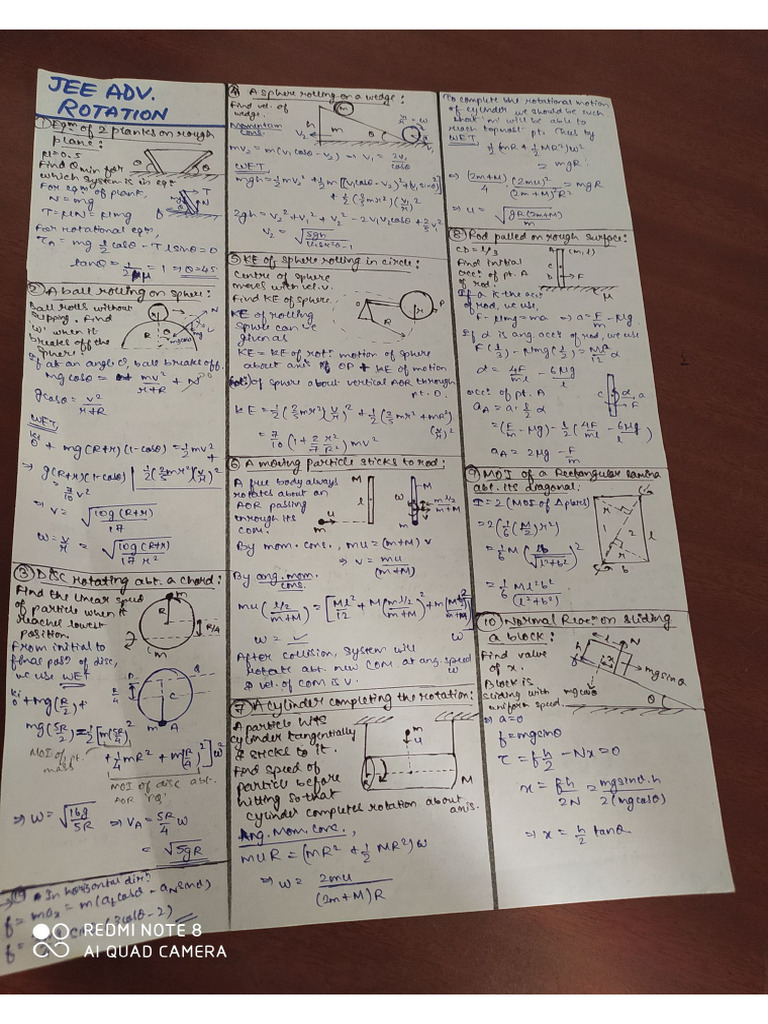 JEE ADV.
ROTATION
① Eqm of 2 planks on rough
plane:
μ=0.5
Find θmin for
which system is in eqm
For eqm of plank,
N = mg
T = μN = μmg
For rotational eqm,
τA = mg l/2 cosθ - T l sinθ = 0
tanθ = 1/2μ = 1 ⇒ θ = 45
② A ball rolling on sphere:
Ball rolls without
slipping. Find
'ω' when it
breaks off the
sphere.
If at an angle θ, ball breaks off.
mg cosθ = mv²/r+R + N
g cosθ = v²/r+R
WET,
Ki
0 + mg(R+r)(1-cosθ) = 1/2 mv² +
1/2(2/5 mr²)(v/r)²
⇒ g(R+r)(1-cosθ)
⇒ v = √10g(R+r)/17
ω = v/r = √10g(R+r)/17 r²
③ Disc rotating abt. a chord:
Find the linear speed
of particle when it
reaches lowest
position.
From initial to
final posn of disc,
we use WET
Ki
0 + mg(R/2) +
mg(5R/2) = 1/2[m(5R/4)²
+ 1/4 mR² + m(R/4)²]ω²
MOI of pt.
mass
MOI of disc abt.
AOR 'PQ'
⇒ ω = √16g/5R ⇒ VA = 5R/4 ω
= √5gR
In horizontal dirn
④ A sphere rolling on a wedge:
Find vel. of
wedge.
Momentum
Cons.
mv₂ = m(v₁cosθ - v₂) ⇒ v₁ = 2v₂/cosθ
WET
⑤ KE of sphere rolling in circle:
Centre of sphere
moves with vel. v.
Find KE of sphere.
KE of rolling
sphere can be
given as
KE = KE of rotn motion of sphere
about axis of OP + KE of motion
of sphere about vertical AOR through
pt. O.
KE = 1/2(2/5 mr²)(v/r)² + 1/2(2/5 mr² + mR²)
(v/R)²
= 7/10(1 + 2/7 r²/R²) mv²
⑥ A moving particle sticks to rod:
A free body always
rotates about an
AOR passing
through its
COM.
By mom. cons., mu = (m+M) v
⇒ v = mu/(m+M)
By ang. mom.
cons.
ω = ✓
After collision, system will
rotate abt. new COM at ang. speed ω
& vel. of COM is v.
⑦ A cylinder completing the rotation:
A particle hits
cylinder tangentially
& sticks to it.
Find speed of
particle before
hitting so that
cylinder completes rotation about
axis.
Ang. Mom. Cons.,
muR = (mR² + 1/2 MR²) ω
⇒ ω = 2mu/(2m+M)R
To complete the rotational motion
of cylinder u should be such
that 'm' will be able to
reach topmost pt. Thus by
WET
= mgR
⇒ (2m+M)/4 (2mu)²/(2m+M)²R² = mgR
⇒ u = √gR(2m+M)/m
⑧ Rod pulled on rough surface:
CD = l/3
Find initial
accn of pt. A
of rod.
If a is the accn
of rod, we use,
F - μmg = ma ⇒ a = F/m - μg
If α is ang. accn of rod, we use
F(l/3) - μmg(l/2) = ml²/12 α
α = 4F/ml - 6μg/l
accn of pt. A
aA = a - l/2 α
= (F/m - μg) - l/2(4F/ml - 6μg/l)
aA = 2μg - F/m
⑨ MOI of a Rectangular lamina
abt. its diagonal:
I = 2(MOI of Δ plates)
= 2(1/6(M/2)r²)
= 1/6 M(lb/√l²+b²)²
= 1/6 Ml²b²/(l²+b²)
⑩ Normal Reacn on sliding
a block:
Find value
of x.
Block is
sliding with
uniform speed.
mg sinθ
mg cosθ
⇒ a=0
f = mg sinθ
τ = f h/2 - Nx = 0
x = fh/2N = mg sinθ.h/2(mg cosθ)
⇒ x = h/2 tanθ
REDMI NOTE 8
AI QUAD CAMERA